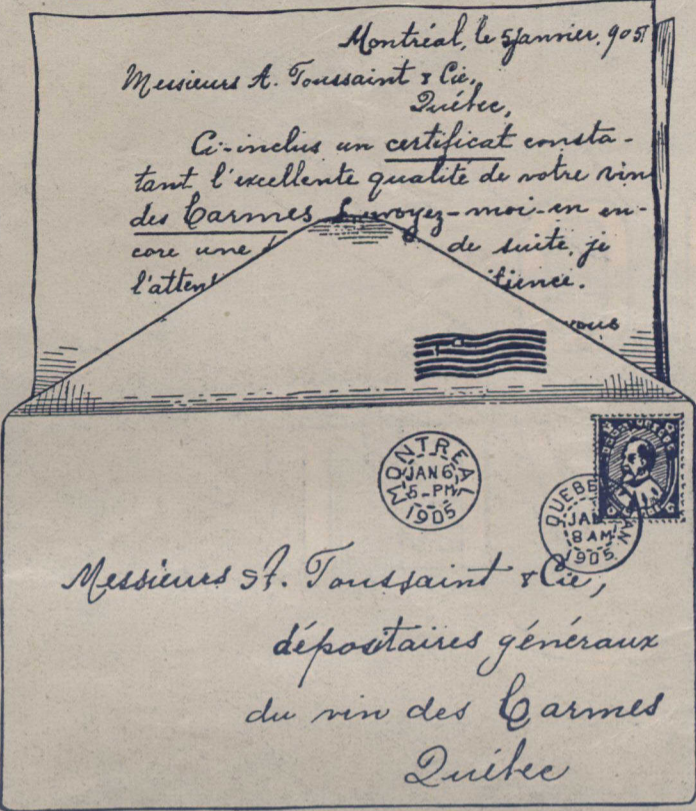 Montréal, le 5 janvier, 905
Messieurs A. Toussaint & Cie,
Québec,
Ci-inclus un certificat consta-
tant l'excellente qualité de votre vin
des Carmes Envoyez-moi-en en-
core une de suite, je
l'atten tience.
vous
MONTREAL
JAN 6
5-PM
1905
QUEBE CAN.
JA
8 AM
1905
Messieurs A. Toussaint & Cie,
dépositaires généraux
du vin des Carmes
Québec